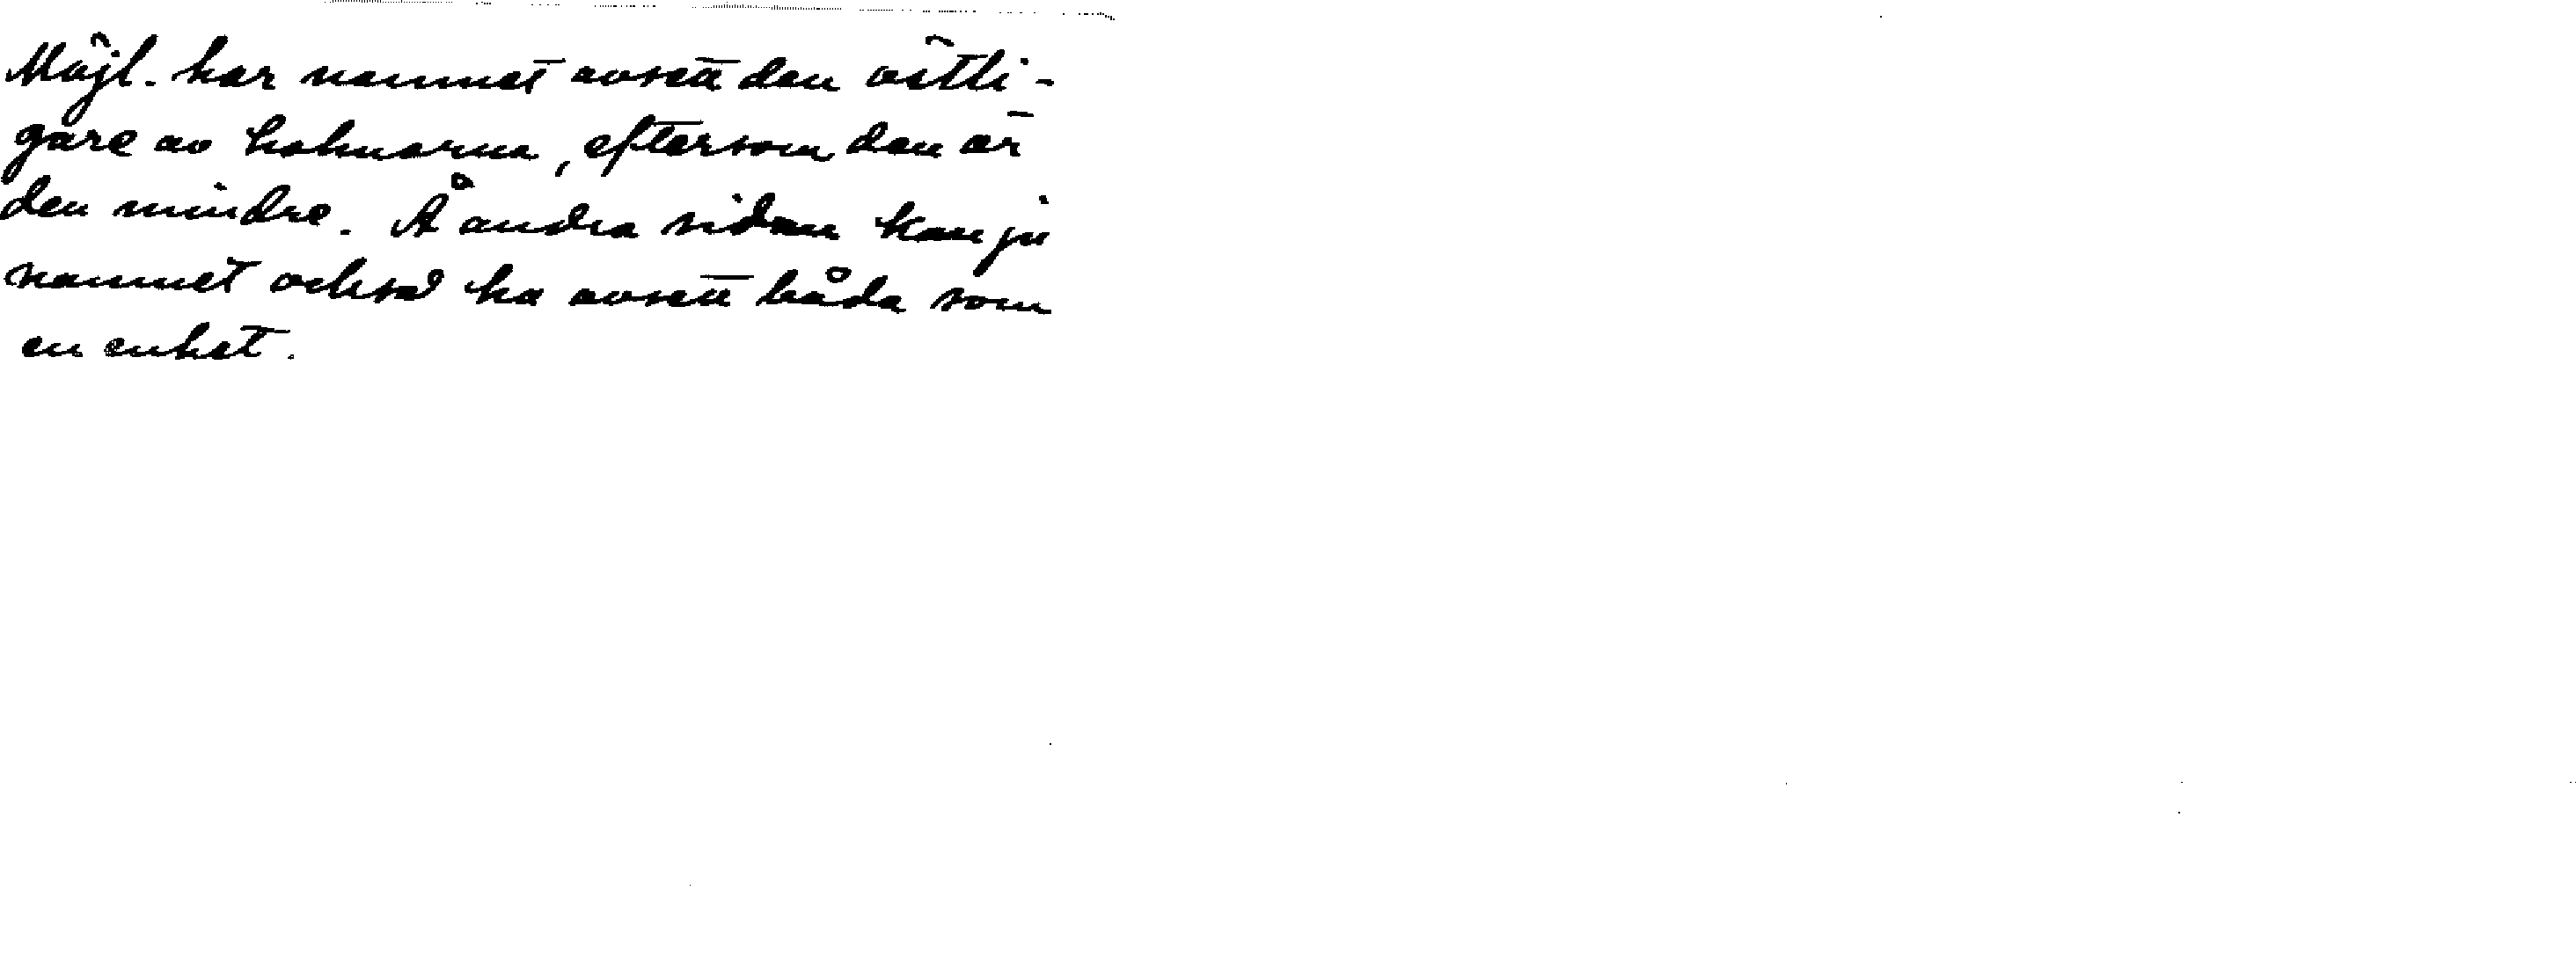 Möjl. har namnet avsett den östli-
gare av holmarna, eftersom den är
den mindre. Å andra sidan kan ju
namnet också ha avsett båda som
en enhet.